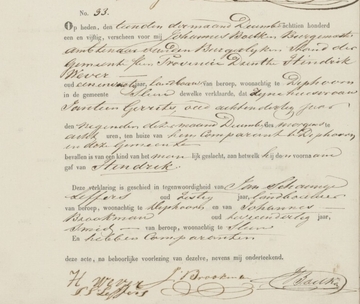 No. 33.
Op heden, den tienden der maand December achttien honderd
een en vijftig, verscheen voor mij Johannes Boelken Burgemeester
Ambtenaar van den Burgerlyken Stand der
Gemeente Sleen Provincie Drenthe Hendrik
Wever
oud eenendertig landbouwer van beroep, woonachtig te Diphoorn
in de gemeente Sleen dewelke verklaarde, dat zyne huisvrouw
Gerrits, oud achtendertig jaar
den Negenden dezer maand December des morgens
acht uren, ten huize van hem Comparant te Diphoorn
in deze Gemeente
bevallen is van een kind van het mann lijk geslacht, aan hetwelk hij den voornaam
gaf van Hendrik
Deze verklaring is geschied in tegenwoordigheid van Jan
oud zestig jaar, Landbouwer
van beroep, woonachtig te Diphoorn en van Johannes
Brookman oud jaar,
Smid van beroep, woonachtig te Sleen
En hebben Comparanten
deze acte, na behoorlijke voorlezing van dezelve, nevens mij onderteekend.
H Wever J Brookman